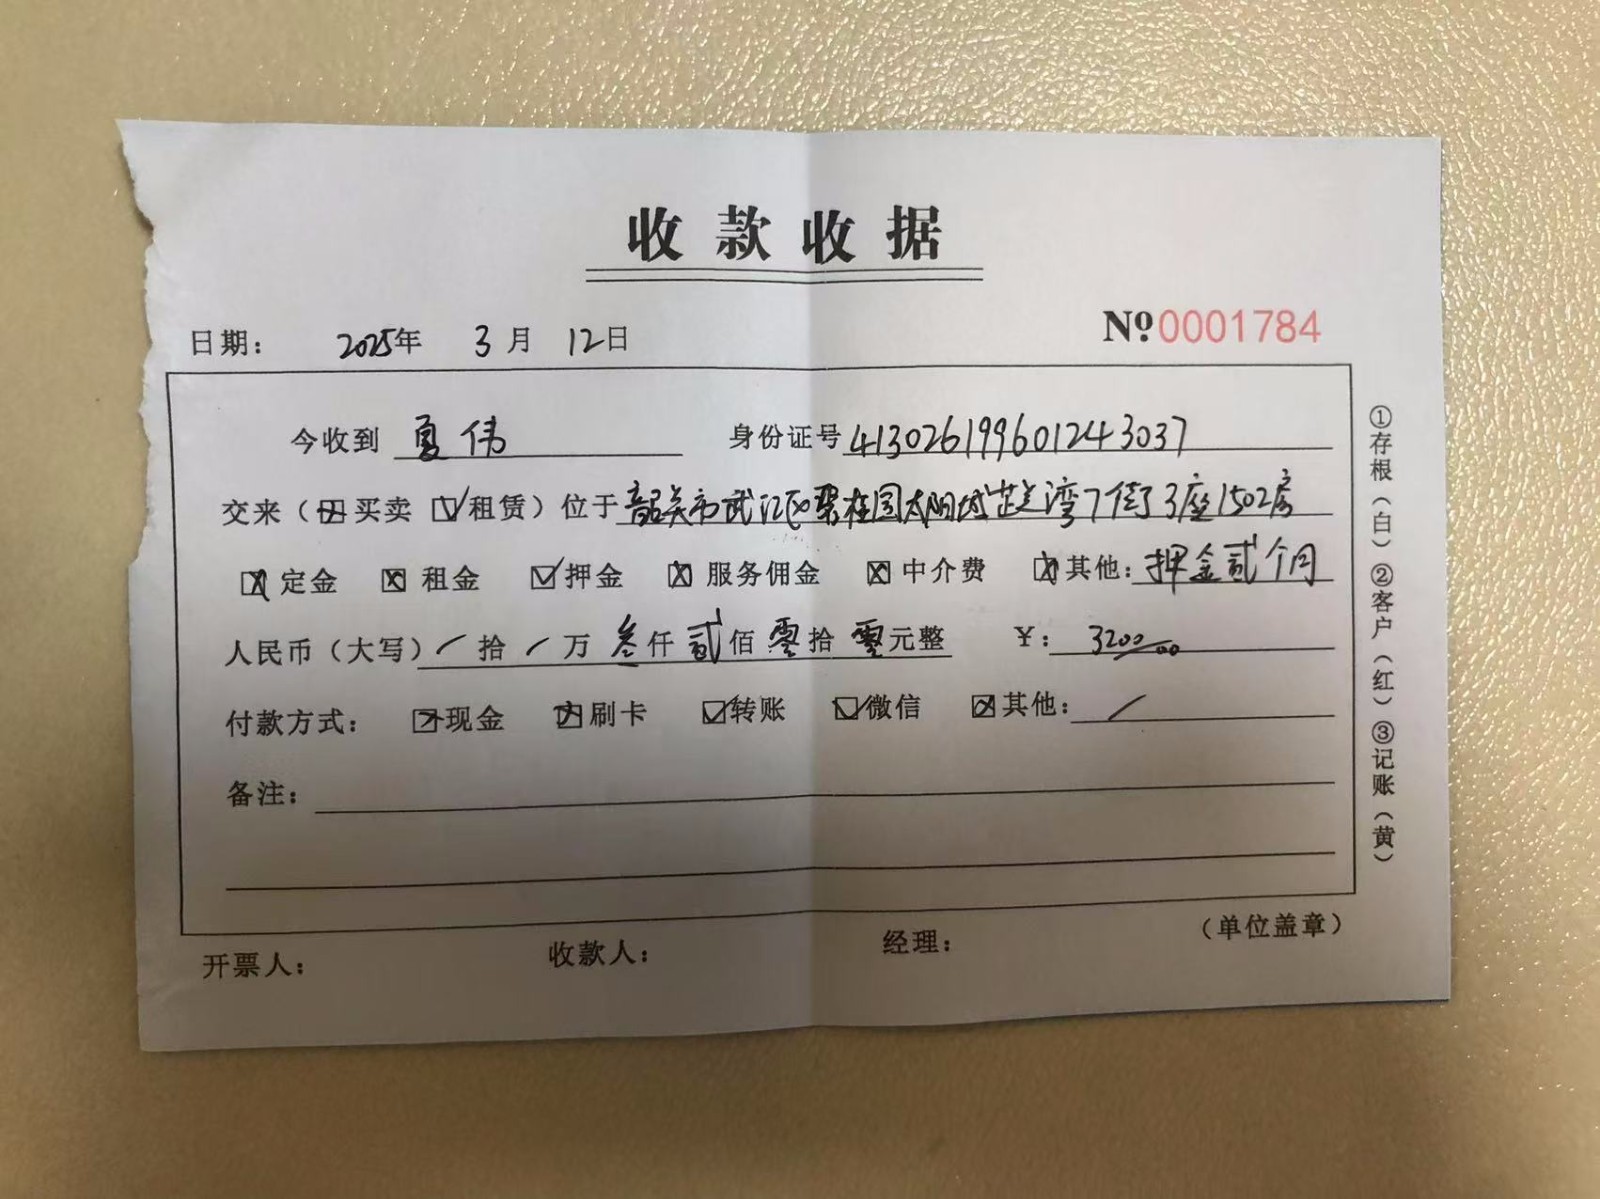 收款收据
日期： 2025年 3月 12日 №0001784
今收到 夏伟 身份证号 413026199601243037
交来（☒买卖 ☑租赁）位于 韶关市武江区碧桂园太阳城芷兰湾7街3座1502房
☒定金 ☒租金 ☑押金 ☒服务佣金 ☒中介费 ☒其他：押金贰个月
人民币（大写）/拾/万叁仟贰佰零拾零元整 ¥：3200.00
付款方式： ☒现金 ☒刷卡 ☑转账 ☑微信 ☒其他：/
备注：
开票人： 收款人： 经理： （单位盖章）
①存根（白）②客户（红）③记账（黄）